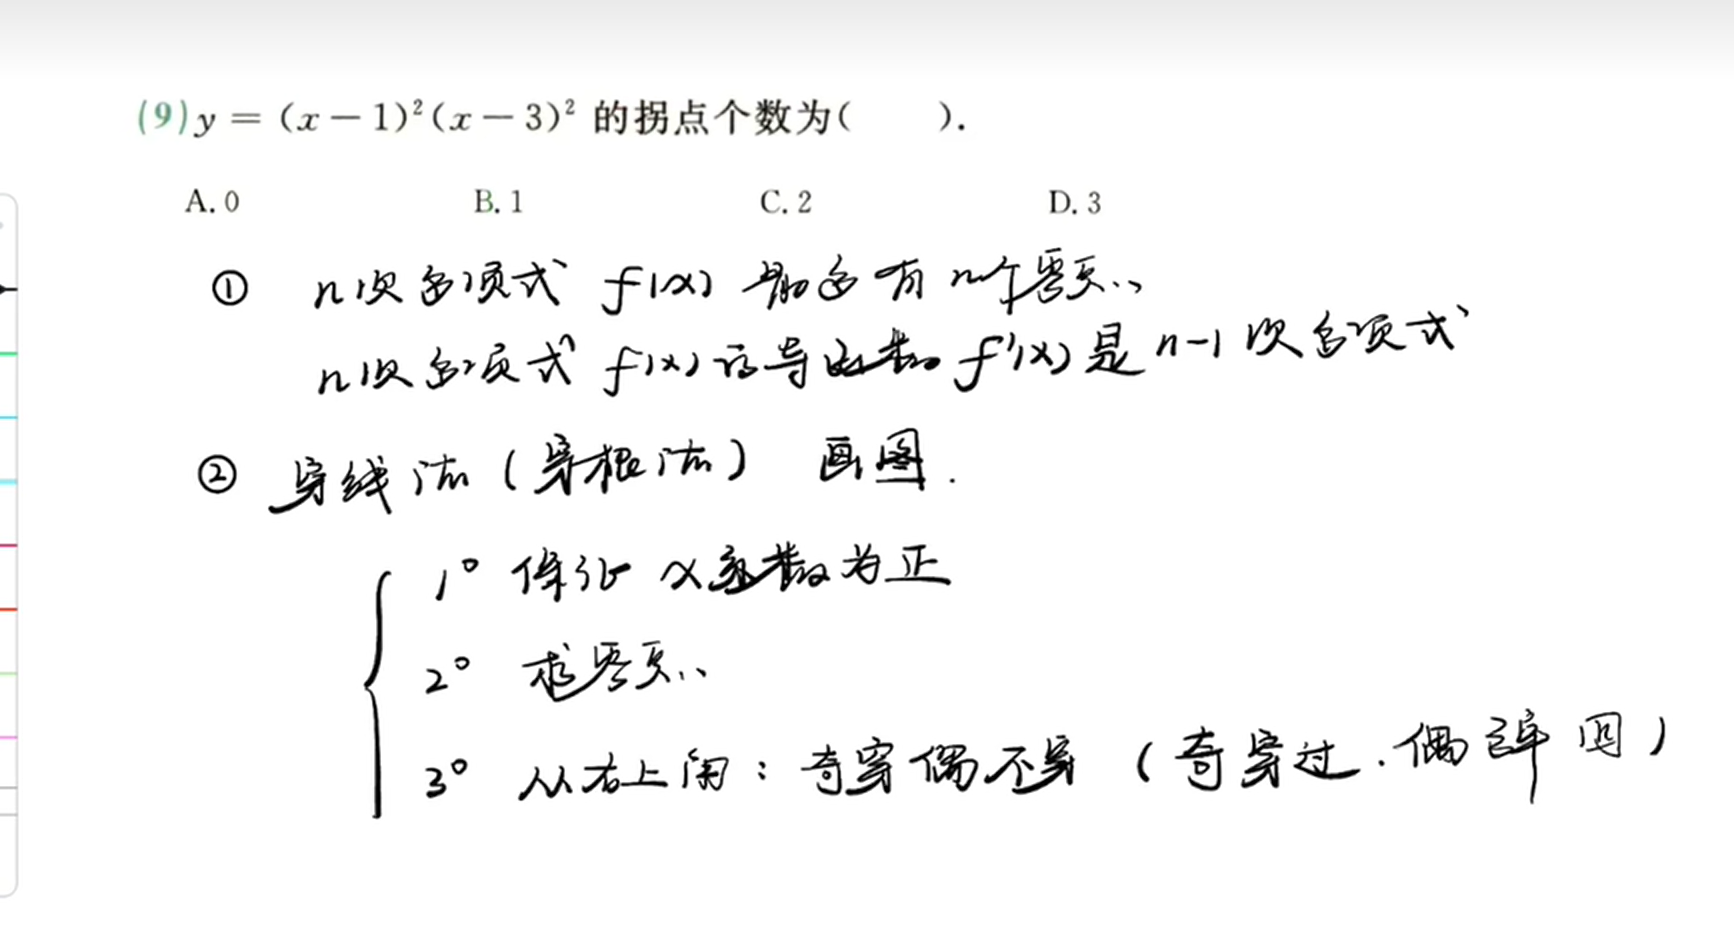 (9) y = (x − 1)²(x − 3)² 的拐点个数为(　　).
A. 0　B. 1　C. 2　D. 3
① n次多项式 f(x) 最多有 n个零点
n次多项式 f(x) 的导函数 f'(x) 是 n-1 次多项式
② 穿线法 (穿根法) 画图.
1° 保证 x系数为正
2° 求零点
3° 从右上开始: 奇穿偶不穿 (奇穿过. 偶弹回)